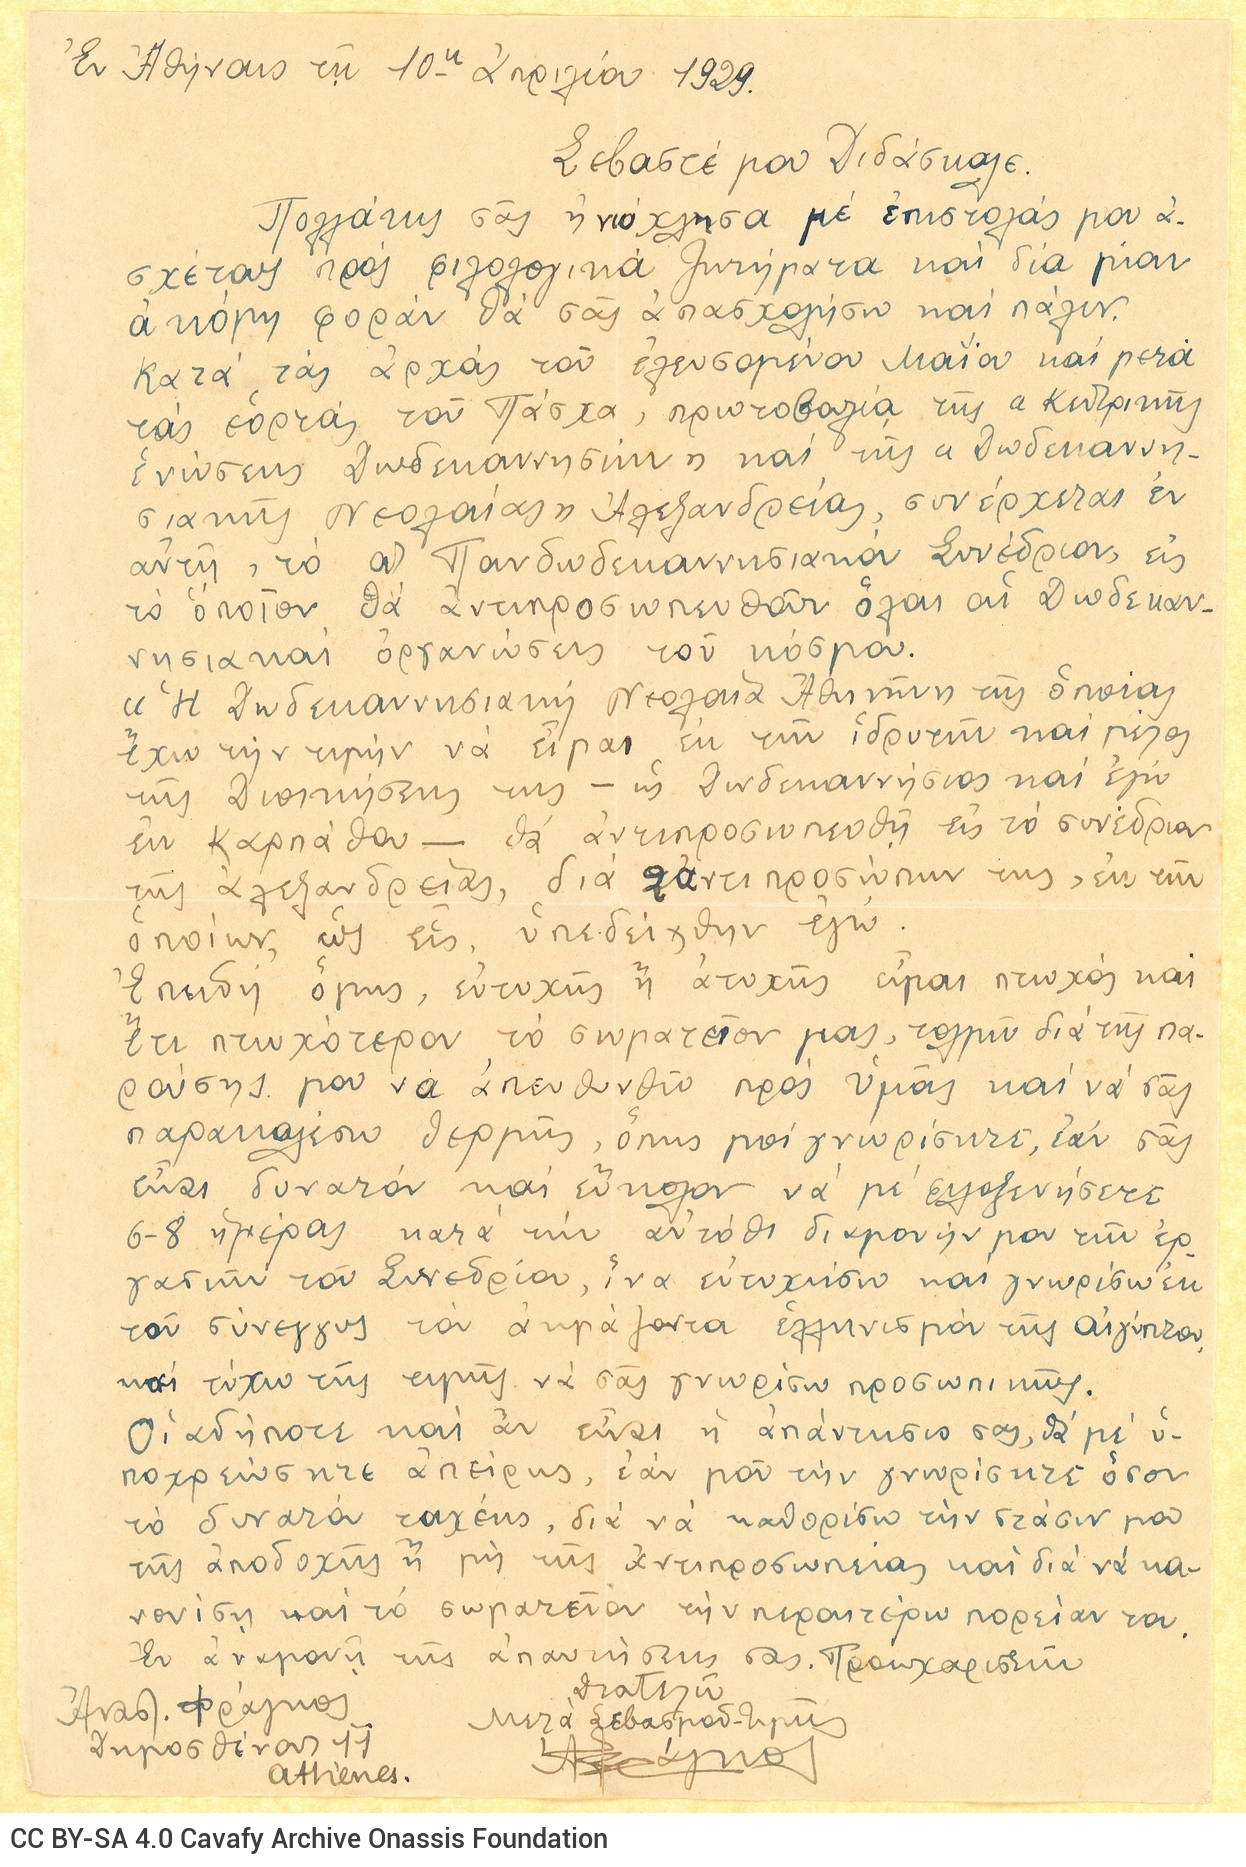 Ἐν Ἀθήναις τῇ 10ῃ ἀπριλίου 1929.
Σεβαστέ μου Διδάσκαλε.
Πολλάκις σᾶς ἠνώχλησα μέ ἐπιστολάς μου ἀ-
σχέτους πρός φιλολογικά ζητήματα καί διά μίαν
ἀκόμη φοράν θά σᾶς ἀπασχολήσω καί πάλιν.
Κατά τάς ἀρχάς τοῦ ἐλευσομένου Μαΐου καί μετά
τάς ἑορτάς τοῦ Πάσχα, πρωτοβουλία τῆς "Κεντρικῆς
ἑνώσεως Δωδεκαννησίων" καί τῆς "Δωδεκαννη-
σιακῆς Νεολαίας" Ἀλεξανδρείας, συνέρχεται ἐν
αὐτῇ, τό αον Πανδωδεκαννησιακόν Συνέδριον, εἰς
τό ὁποῖον θά ἀντιπροσωπευθοῦν ὅλαι αἱ Δωδεκαν-
νησιακαί ὀργανώσεις τοῦ κόσμου.
"Ἡ Δωδεκαννησιακή Νεολαία Ἀθηνῶν" τῆς ὁποίας
ἔχω τήν τιμήν νά εἶμαι ἐκ τῶν ἱδρυτῶν καί μέλος
τῆς Διοικήσεως της – ὡς Δωδεκαννήσιος καί ἐγώ
ἐκ Καρπάθου – θά ἀντιπροσωπευθῇ εἰς τό συνέδριον
τῆς Ἀλεξανδρείας, διά 2 ἀντιπροσώπων της, ἐκ τῶν
ὁποίων, ὡς εἷς, ὑπεδείχθην ἐγώ.
Ἐπειδή ὅμως, εὐτυχῶς ἤ ἀτυχῶς εἶμαι πτωχός καί
ἔτι πτωχότερον τό σωματεῖον μας, τολμῶ διά τῆς πα-
ρούσης μου να ἀπευθυνθῶ πρός ὑμᾶς καί νά σᾶς
παρακαλέσω θερμῶς, ὅπως μοί γνωρίσητε, ἐάν σᾶς
εἶναι δυνατόν καί εὔκολον νά μέ φιλοξενήσετε
6-8 ἡμέρας κατά τήν αὐτόθι διαμονήν μου τῶν ἐρ-
γασιῶν τοῦ Συνεδρίου, ἵνα εὐτυχήσω καί γνωρίσω ἐκ
τοῦ σύνεγγυς τόν ἀκμάζοντα ἑλληνισμόν τῆς Αἰγύπτου,
καί τύχω τῆς τιμῆς νά σᾶς γνωρίσω προσωπικῶς.
Οἱαδήποτε καί ἄν εἶναι ἡ ἀπάντησις σας, θά μέ ὑ-
ποχρεώσητε ἀπείρως, ἐάν μοῦ τήν γνωρίσητε ὅσον
τό δυνατόν ταχέως, διά νά καθορίσω τήν στάσιν μου
τῆς ἀποδοχῆς ἤ μή τῆς ἀντιπροσωπείας καί διά νά κα-
νονίσῃ καί τό σωματεῖον τήν περαιτέρω πορείαν του.
Ἐν ἀναμονῇ τῆς ἀπαντήσεως σας. Προευχαριστῶν
Διατελῶ
Μετά σεβασμοῦ-τιμῆς
Α Φράγκος
Ἀναστ. Φράγκος
Δημοσθένους 11
Athènes.
CC BY-SA 4.0 Cavafy Archive Onassis Foundation